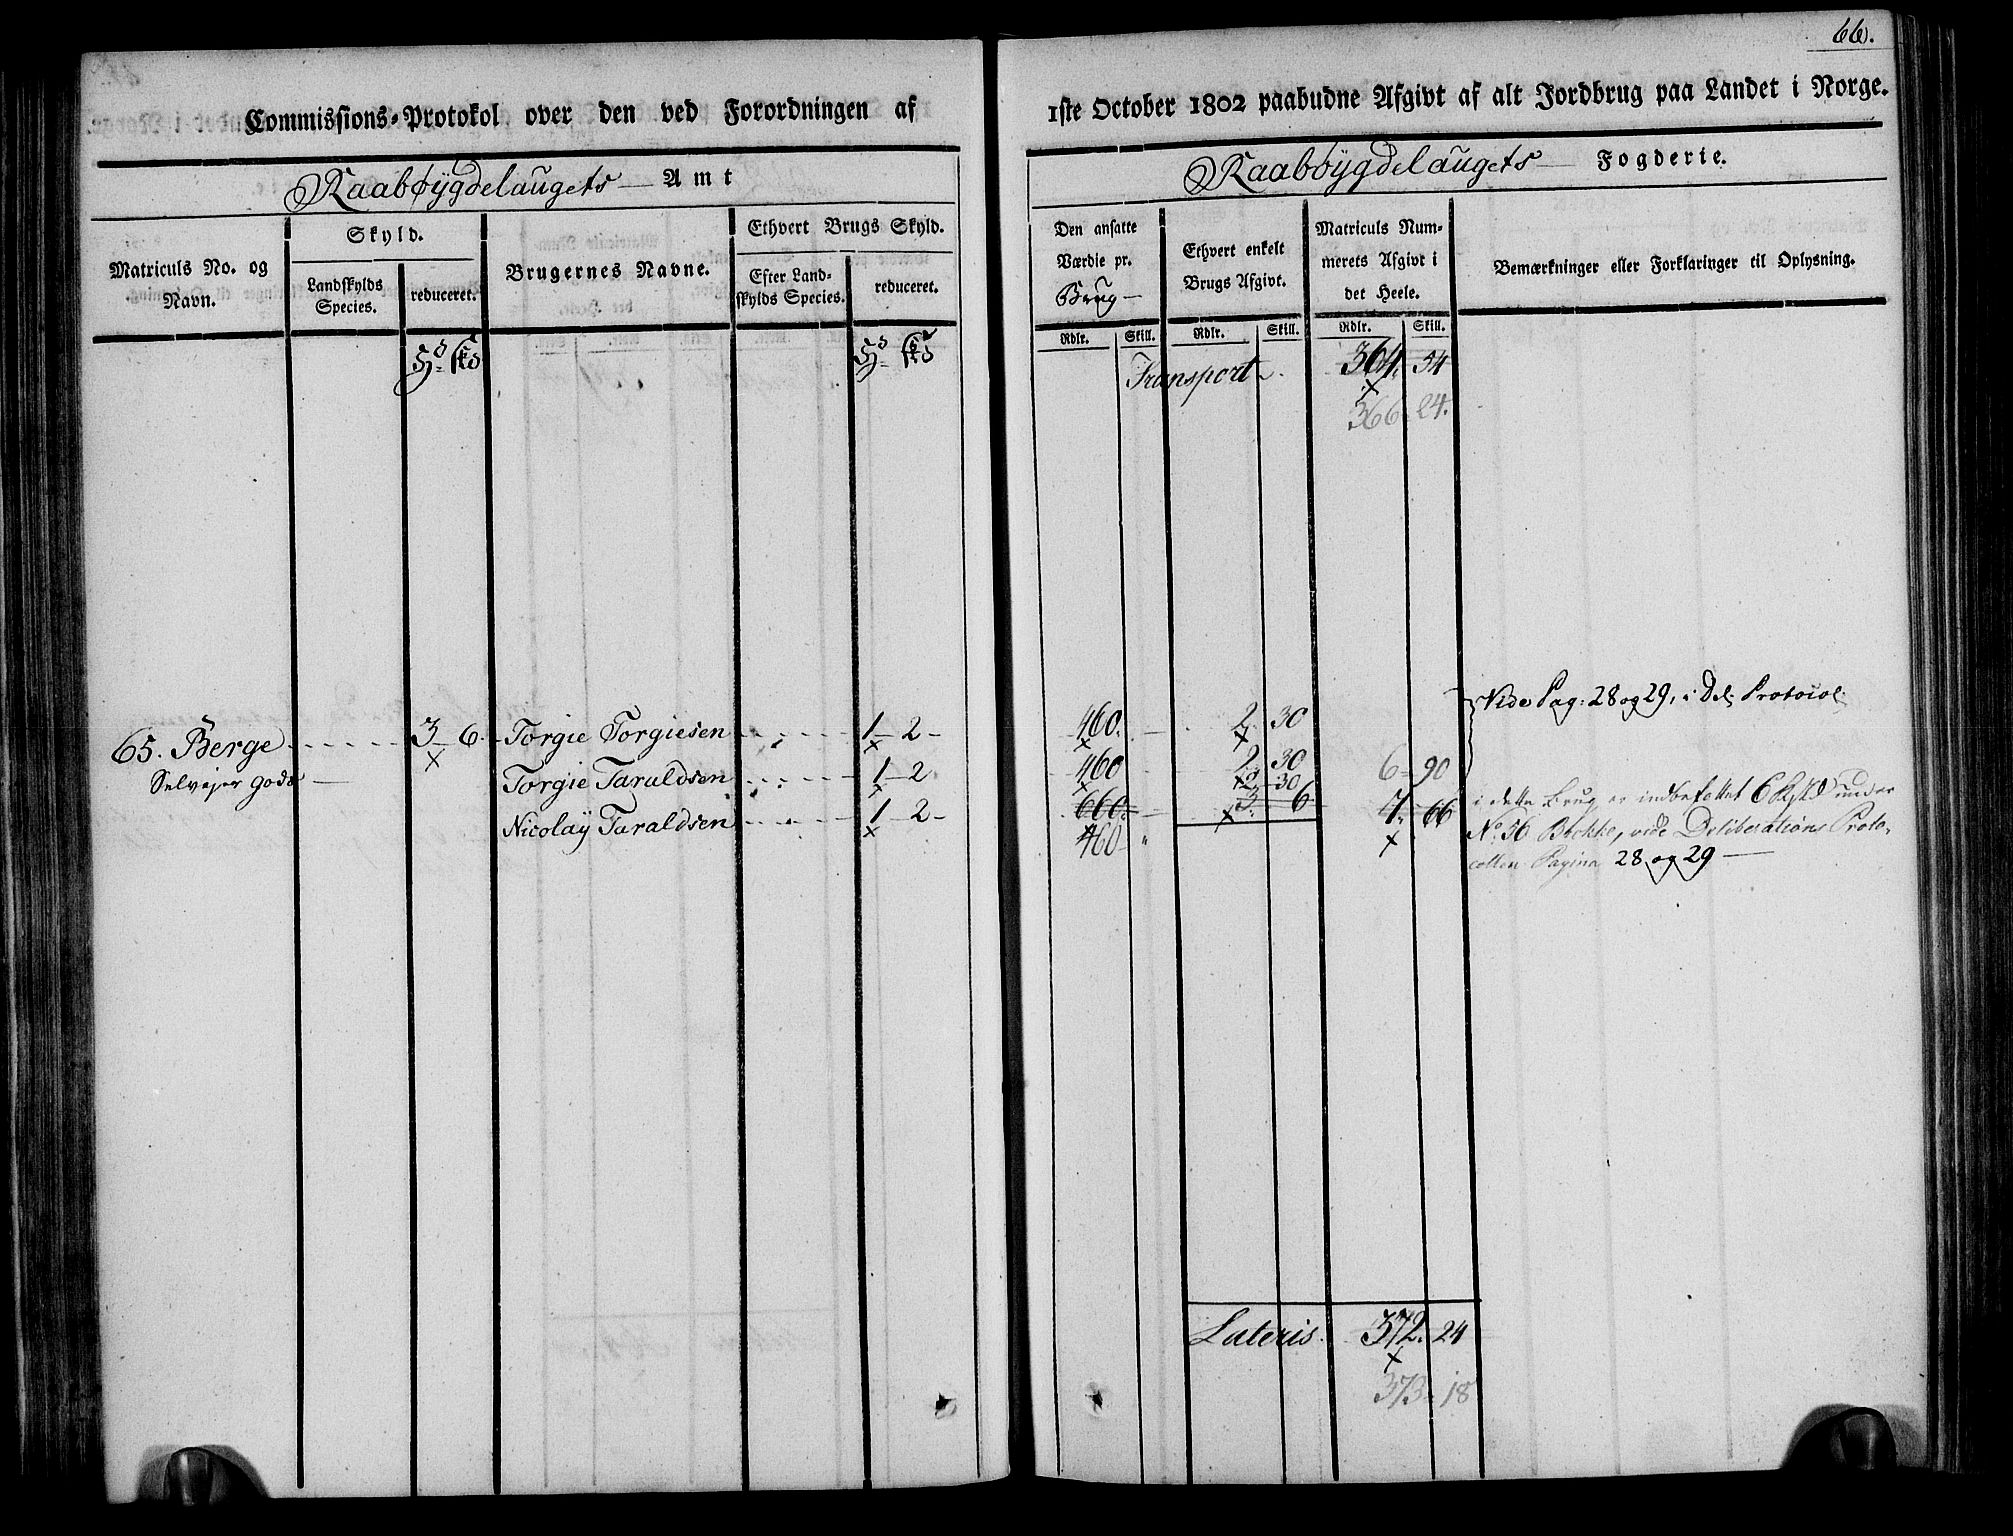 66.
Commissions-Protokol over den ved Forordningen af
1ste October 1802 paabudne Afgivt af alt Jordbrug paa Landet i Norge.
Raabøygdelaugets Amt
Raabøygdelaugets Fogderie.
Matriculs No. og Navn.
Skyld.
Landskylds Species.
reduceret.
Brugernes Navne.
Ethvert Brugs Skyld.
Efter Landskylds Species.
reduceret.
Den ansatte Værdie pr. Brug
Ethvert enkelt Brugs Afgivt.
Matriculs Nummerets Afgivt i det Heele.
Bemærkninger eller Forklaringer til Oplysning.
Rdlr. Skill. Rdlr. Skill. Rdlr. Skill.
Transport 364 54
366 24.
Vide Pag: 28 og 29, i Del: Protocol
65. Berge 3 6 Torgie Torgiesen 1 2 460 2 30
Selvejer gods Torgie Taraldsen 1 2 460 2 30 6 90
2 30
Nicolaÿ Taraldsen 1 2 660 3 6 7 66
460
i dette Brug er indbefattet 6 under
No 56 Brokke, vide Deliberations Proto-
collen Pagina 28 og 29
Lateris 372 24
373 18